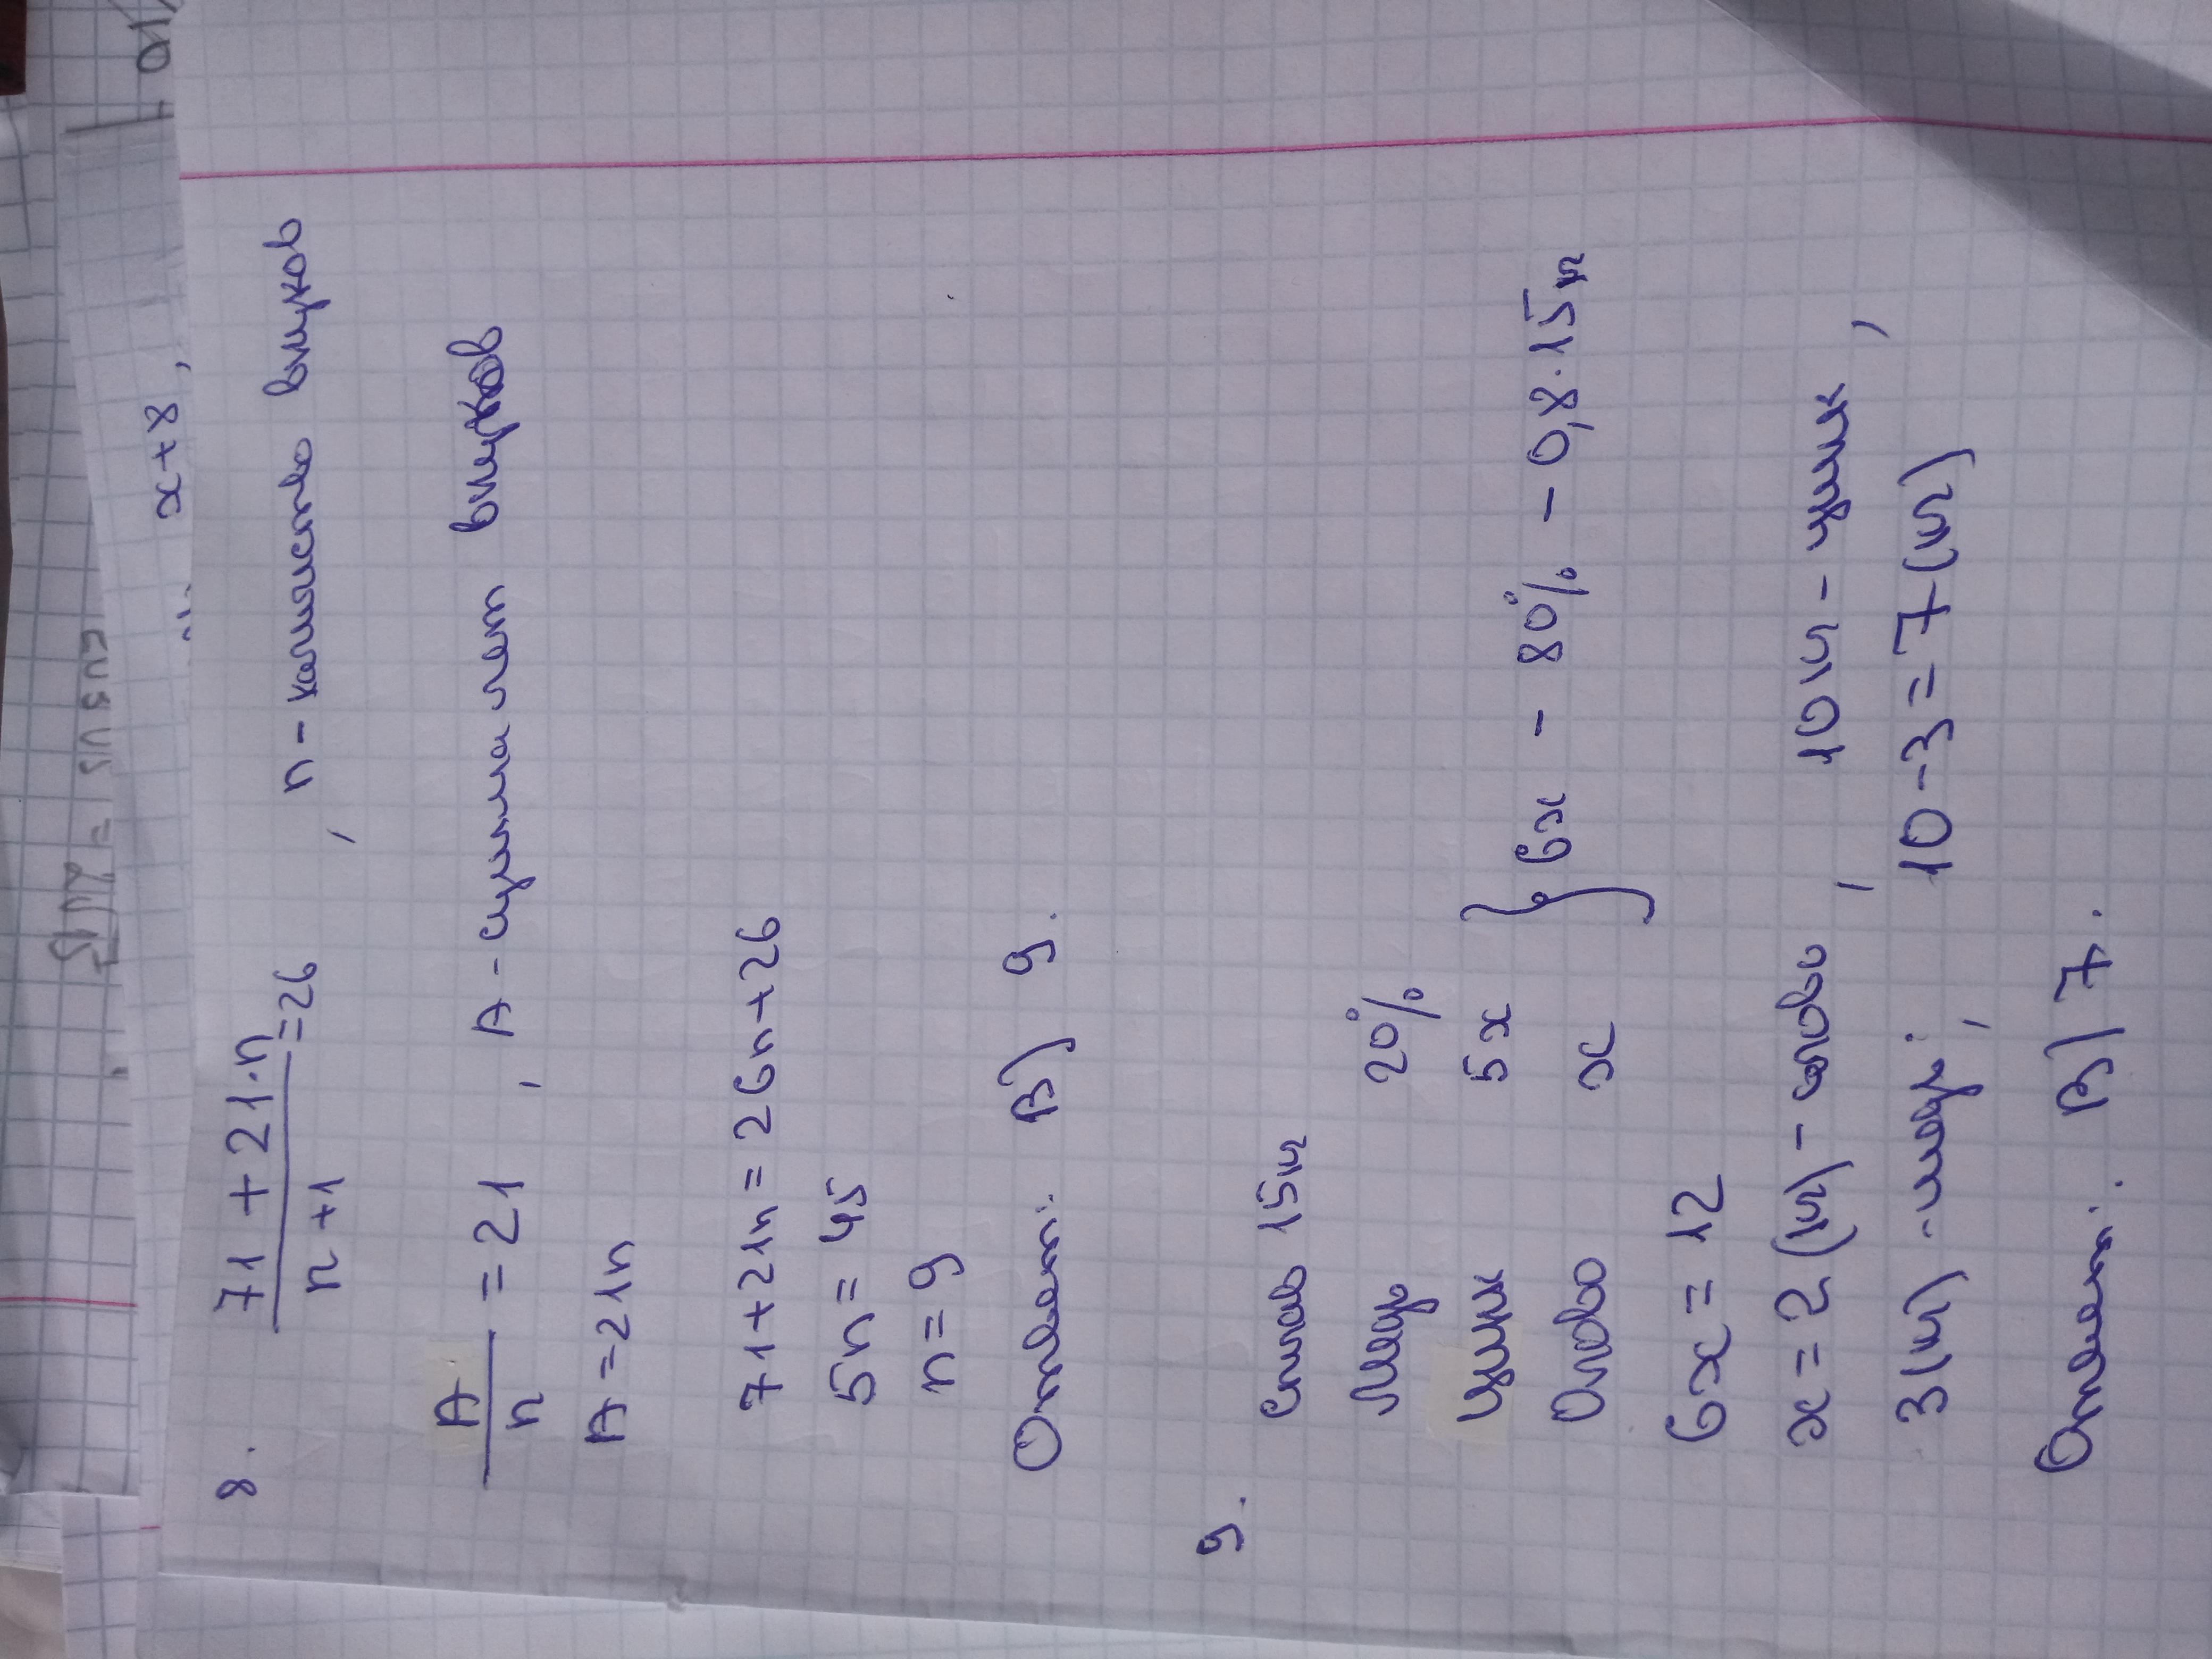 x+8,
8. 71 + 21·n / n+1 =26, n - количество внуков
A/n = 21, A - сумма лет внуков
A = 21n
71+21n = 26n+26
5n = 45
n = 9
Ответ: B) 9.
9.
Сплав 15кг
Медь 20%
Цинк 5x
Олово x } 6x - 80% - 0,8·15кг
6x = 12
x = 2 (кг) - олово, 10кг - цинк,
3(кг) - медь; 10-3=7(кг)
Ответ: B) 7.